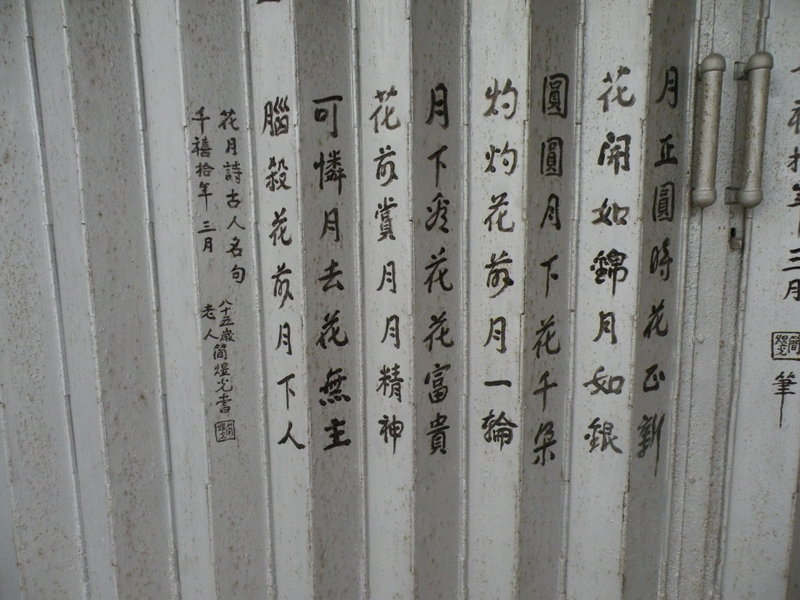 月正圓時花正新
花開如錦月如銀
圓圓月下花千朵
灼灼花前月一輪
月下看花花富貴
花前賞月月精神
可憐月去花無主
腦殺花前月下人
花月詩古人名句
千禧拾年 三月
八十五歲簡燈光書
老人
千禧拾年三月
筆